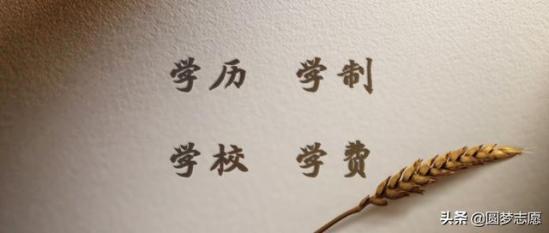 学历 学制
学校 学费
头条 @圆梦志愿